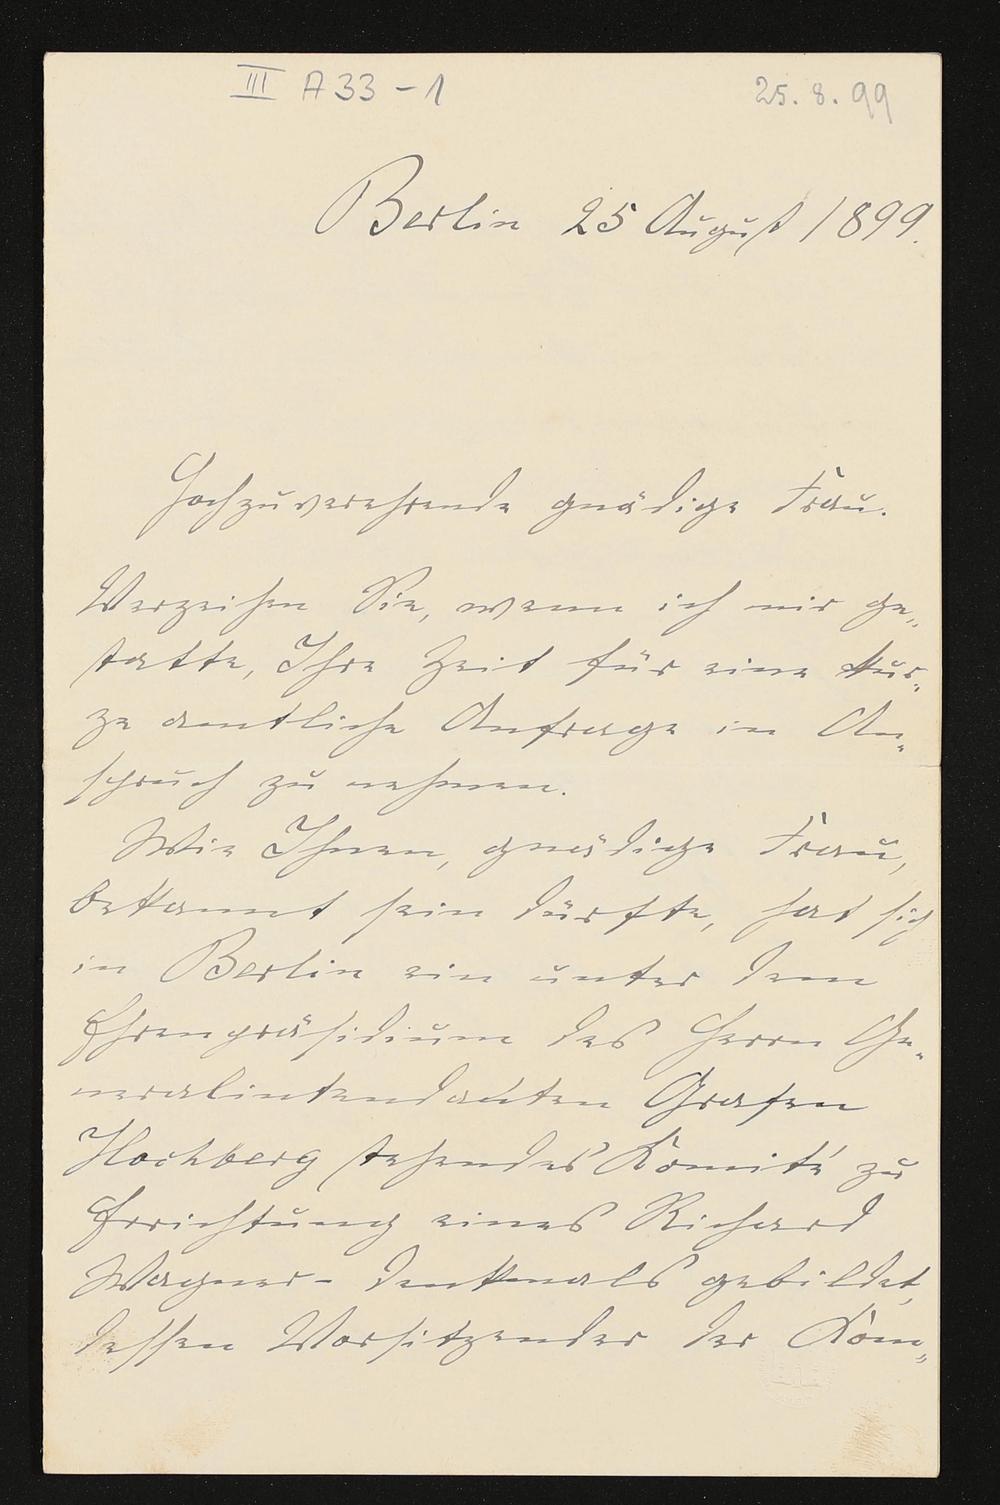 III A 33 - 1
25. 8. 99
Berlin 25 August 1899.
Hochzuverehrende gnädige Frau.
Verzeihen Sie, wenn ich mir ge„
statte, Ihre Zeit für eine kur„
ze amtliche Anfrage in An„
spruch zu nehmen.
Wie Ihnen, gnädige Frau,
bekannt sein dürfte, hat sich
in Berlin ein unter dem
Ehrenpräsidium des Herrn Ge„
neralintendanten Grafen
Hochberg stehendes Komité zur
Errichtung eines Richard
Wagner- Denkmals gebildet,
dessen Vorsitzender der Kom„